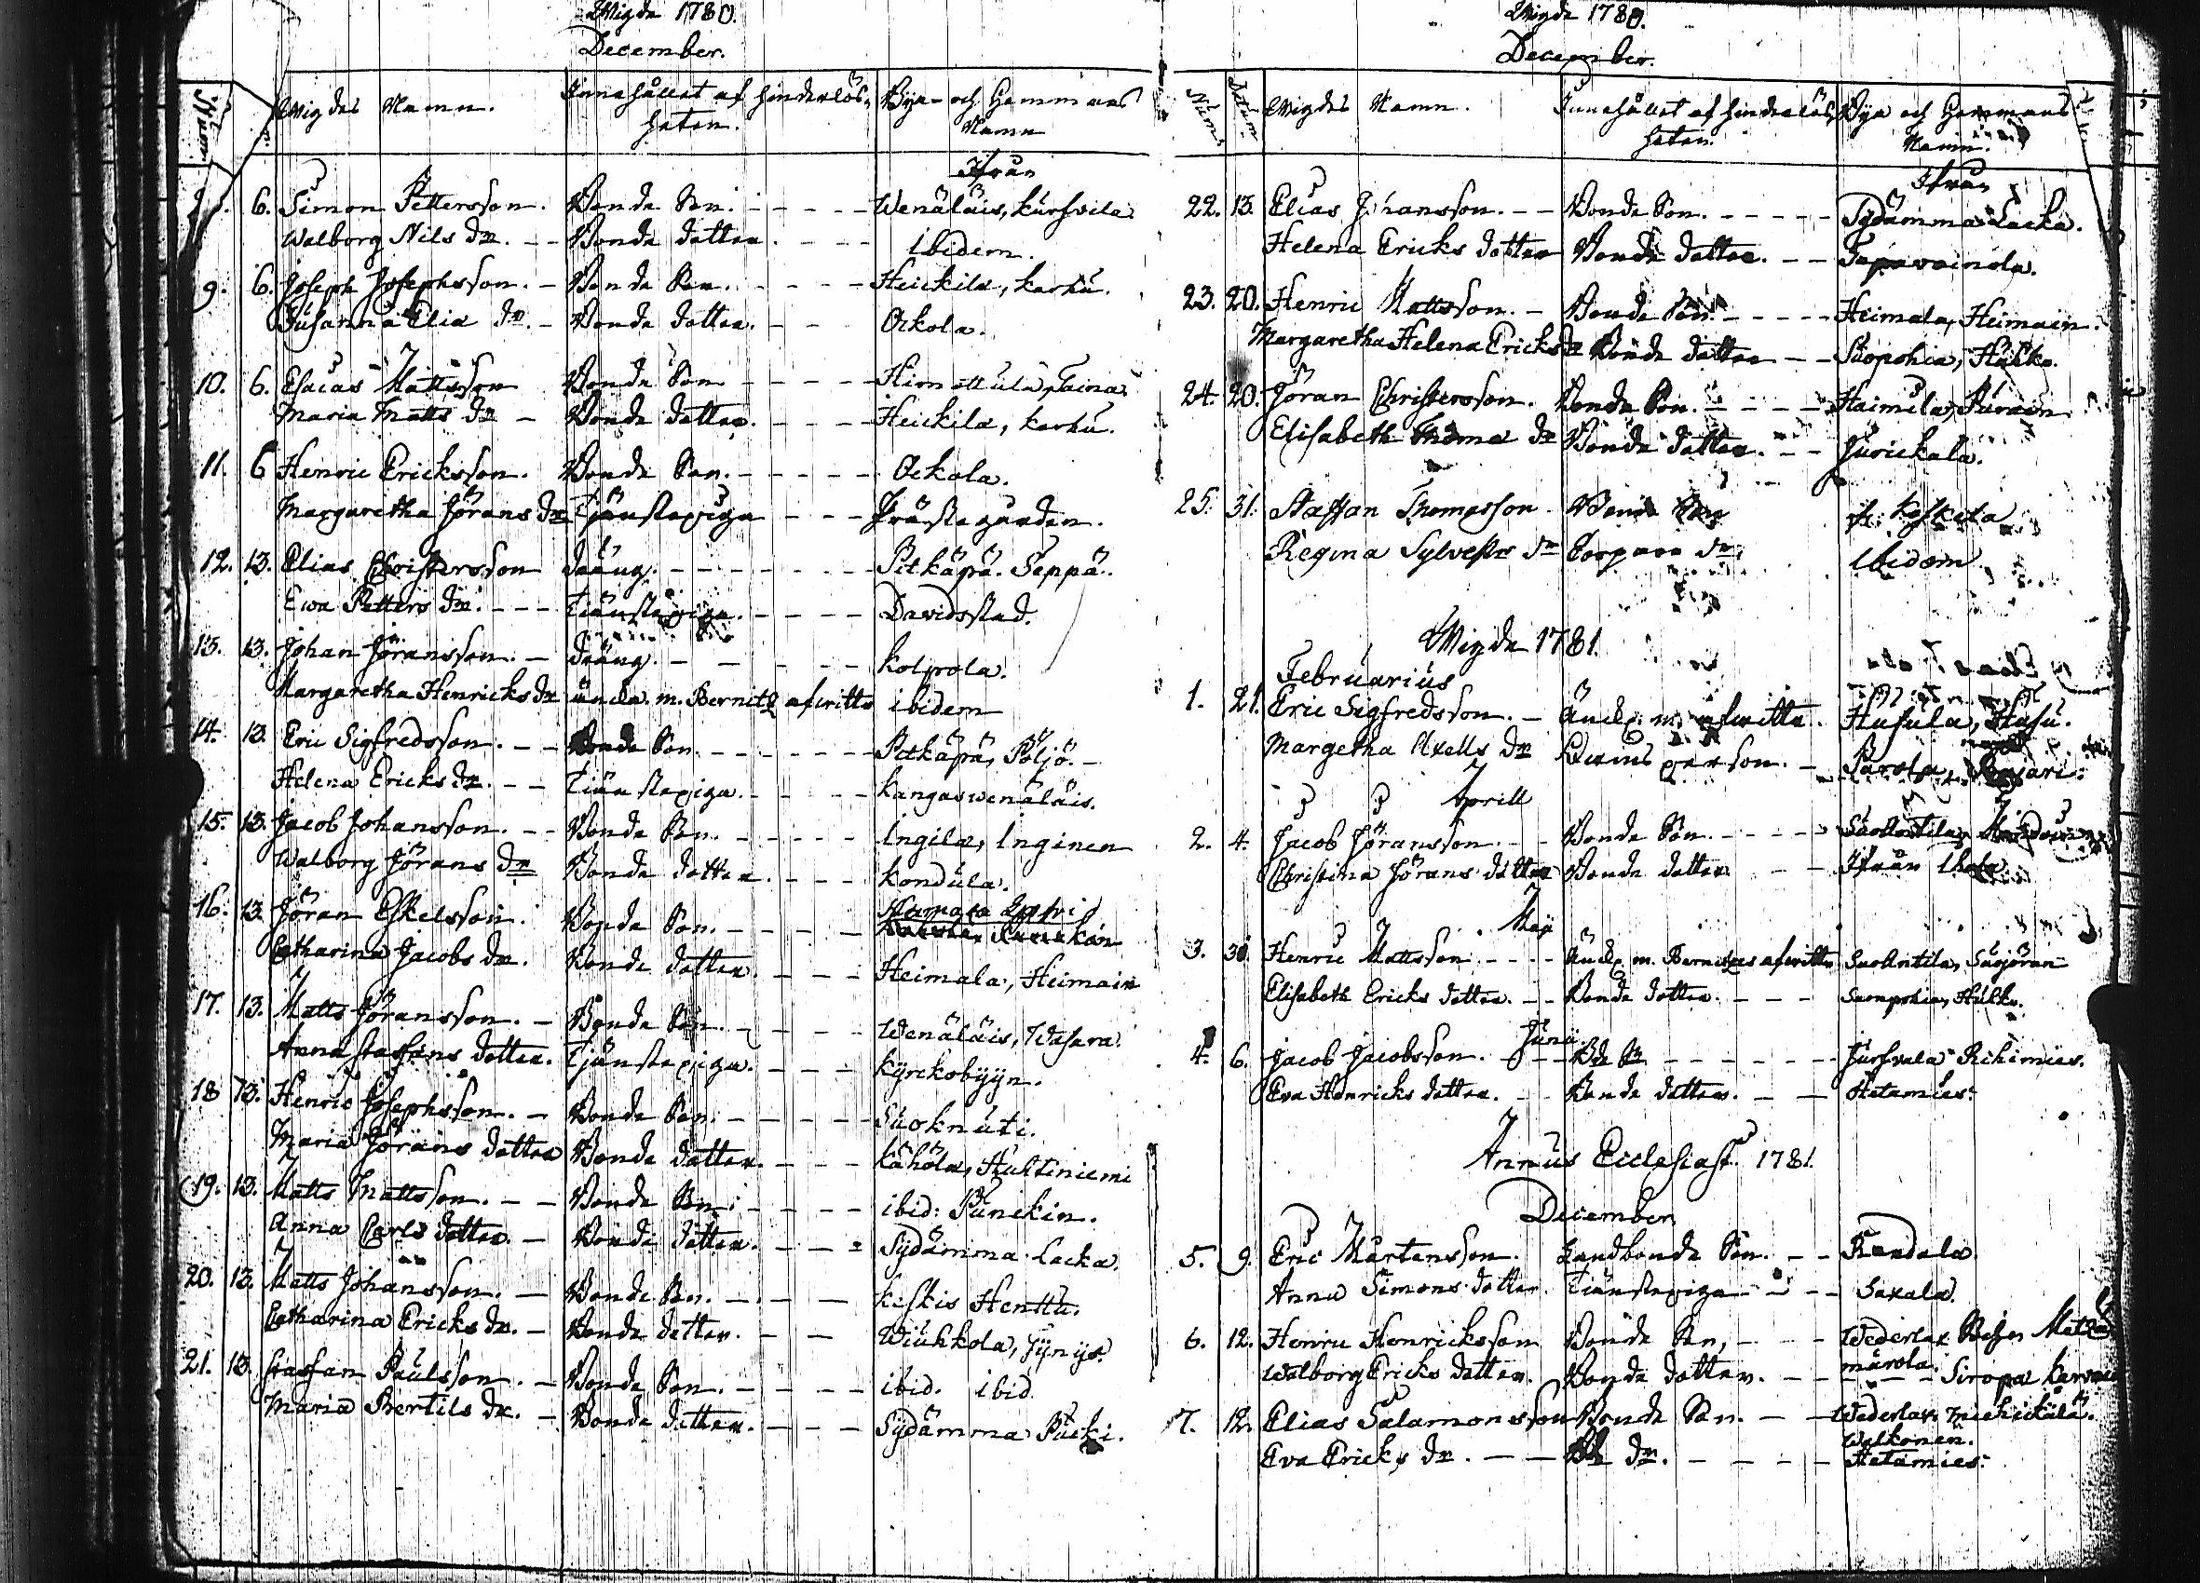 Wigde 1780.
December.
Wigdes Namn. Innehållet af hinderlös- Bya- och Hemmans
heten. Namn
Ifrån
6. Simon Pettersson. Bonde Son. Wenäläis, Kurhvila
Walborg Nils dr. Bonde dotter. ibidem.
9. 6. Joseph Josephsson. Bonde Son. Heickilä, Karhu.
Susanna Elia dr. Bonde dotter. Ockola.
10. 6. Esaias Mattsson Bonde Son Himottula, Taina
Maria Matts dr Bonde dotter. Heickilä, Karhu.
11. 6 Henric Ericksson. Bonde Son. Ockola.
Margaretha Jörans dr Tjänstepiga Prästegården.
12. 13. Elias Christersson dräng. Pitkäpä. Seppä.
Ewa Petters dr. Tiänstepiga. Davidsstad.
13. 13. Johan Jöransson. dräng. Kolprola.
Margaretha Henricks dr äncka. m. Bernitz afwitt. ibidem
14. 13. Eric Sigfredsson. Bonde Son. Pitkäpä, Pöljö.
Helena Ericks dr. Tiänstepiga. Kangaswenäläis.
15. 13. Jacob Johansson. Bonde Son. Ingilä, Inginen
Walborg Jörans dr Bonde dotter. Kondula.
16. 13. Jöran Eskelsson. Bonde Son.
Catharina Jacobs dr. Bonde dotter. Heimala, Heimain
17. 13. Matts Jöransson. Bonde Son. Wenäläis, Wasara.
Anna Staffans dotter. Tjänstepiga. Kyrckobyyn.
18 13. Henric Josephsson. Bonde Son. Suoknuti.
Maria Jörans dotter Bonde dotter. Kähölä, Huhtiniemi
19. 13. Matts Mattsson. Bonde Son. ibid: Punckin.
Anna Carls dotter. Bonde dotter. Sydämma Lacka.
20. 13. Matts Johansson. Bonde Son. Kiskis Henttu.
Catharina Ericks dr. Bonde dotter. Wiukkola, Jynys.
21. 13. Staffan Paulsson. Bonde Son. ibid. ibid.
Maria Bertils dr. Bonde dotter. Sydämma Pucki.
Wigde 1780.
December.
Num. Datum Wigdes Namn. Innehållet af hinderlös- Bya och Hemmans
heten. Namn.
Ifrån
22. 13. Elias Johansson. Bonde Son. Sydämma Lacka.
Helena Ericks dotter Bonde dotter. Tapavainola.
23. 20. Henric Mattsson. Bonde Son. Heimala, Heimain.
Margaretha Helena Ericks dr Bonde dotter Suopohia, Hulko.
24. 20. Jöran Christersson. Bonde Son. Haimila, Purain
Elisabeth Thoma dr Bonde dotter. Jurickala.
25. 31. Staffan Thomasson Bonde Son Keskela
Regina Sylvestr dr Torpare dr. ibidem
Wigde 1781.
Februarius
1. 21. Eric Sigfredsson. Äncl. m. afwitt. Husula, Husu.
Margetha Axells dr Qwinsperson. Parola,
Aprill
2. 4. Jacob Jöransson. Bonde Son.
Christina Jörans dotter Bonde dotter Ifrån
Maji
3. 30. Henric Mattsson Äncl. m. afwitt. SuoAntila, Suojöran
Elisabeth Ericks dotter. Bonde dotter. Suopohia, Hulko.
Junii
4. 6. Jacob Jacobsson. Bde Sn Jurhvala Rihimies.
Eva Henricks dotter. Bonde dotter. Hetamies.
Annus Ecclesiast. 1781.
December
5. 9. Eric Mårtensson. Landbonde Son. Randala.
Anna Simons dotter. Tiänstepiga Saxala.
6. 12. Henric Henricksson Bonde Son,
Walborg Ericks dotter. Bonde dotter.
7. 12. Elias Salamonsson Bonde Son.
Walkonen.
Eva Ericks dr. Bd dr. Hetamies.